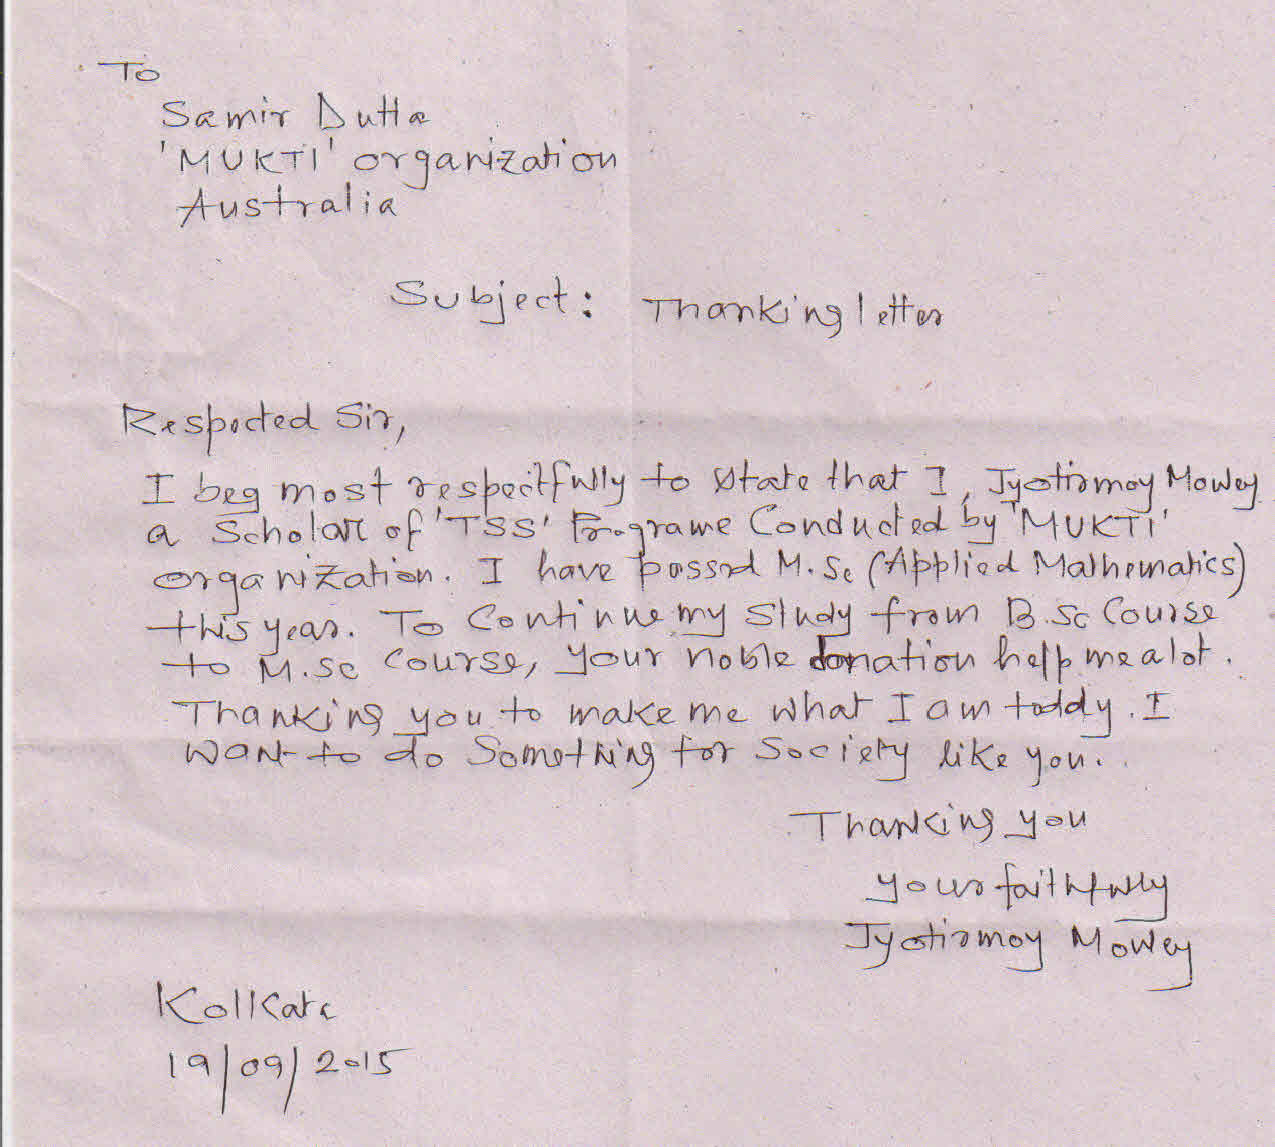 To
Samir Dutta
'MUKTI' organization
Australia
Subject: Thanking letter
Respected Sir,
I beg most respectfully to state that I, Jyotirmoy Mowley
a Scholar of 'TSS' Programe Conducted by 'MUKTI'
organization. I have passed M.Sc (Applied Mathematics)
this year. To Continue my Study from B.Sc Course
to M.Sc Course, your noble donation help me alot.
Thanking you to make me what I am today. I
want to do Something for Society like you.
Thanking you
your faithfully
Jyotirmoy Mowley
Kolkata
19/09/2015